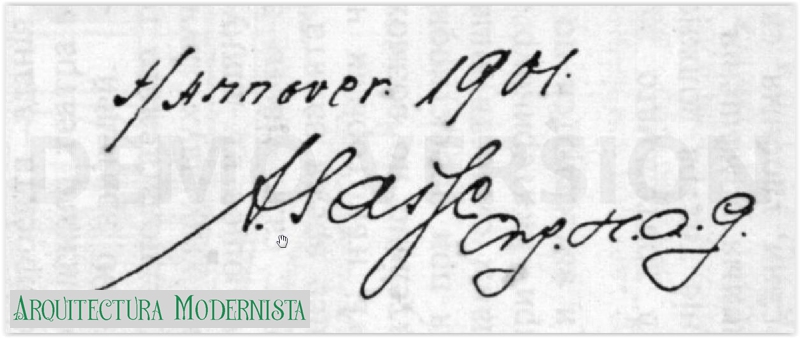 Hannover 1901.
A. Sasse
DEMO VERSION
ARQUITECTURA MODERNISTA